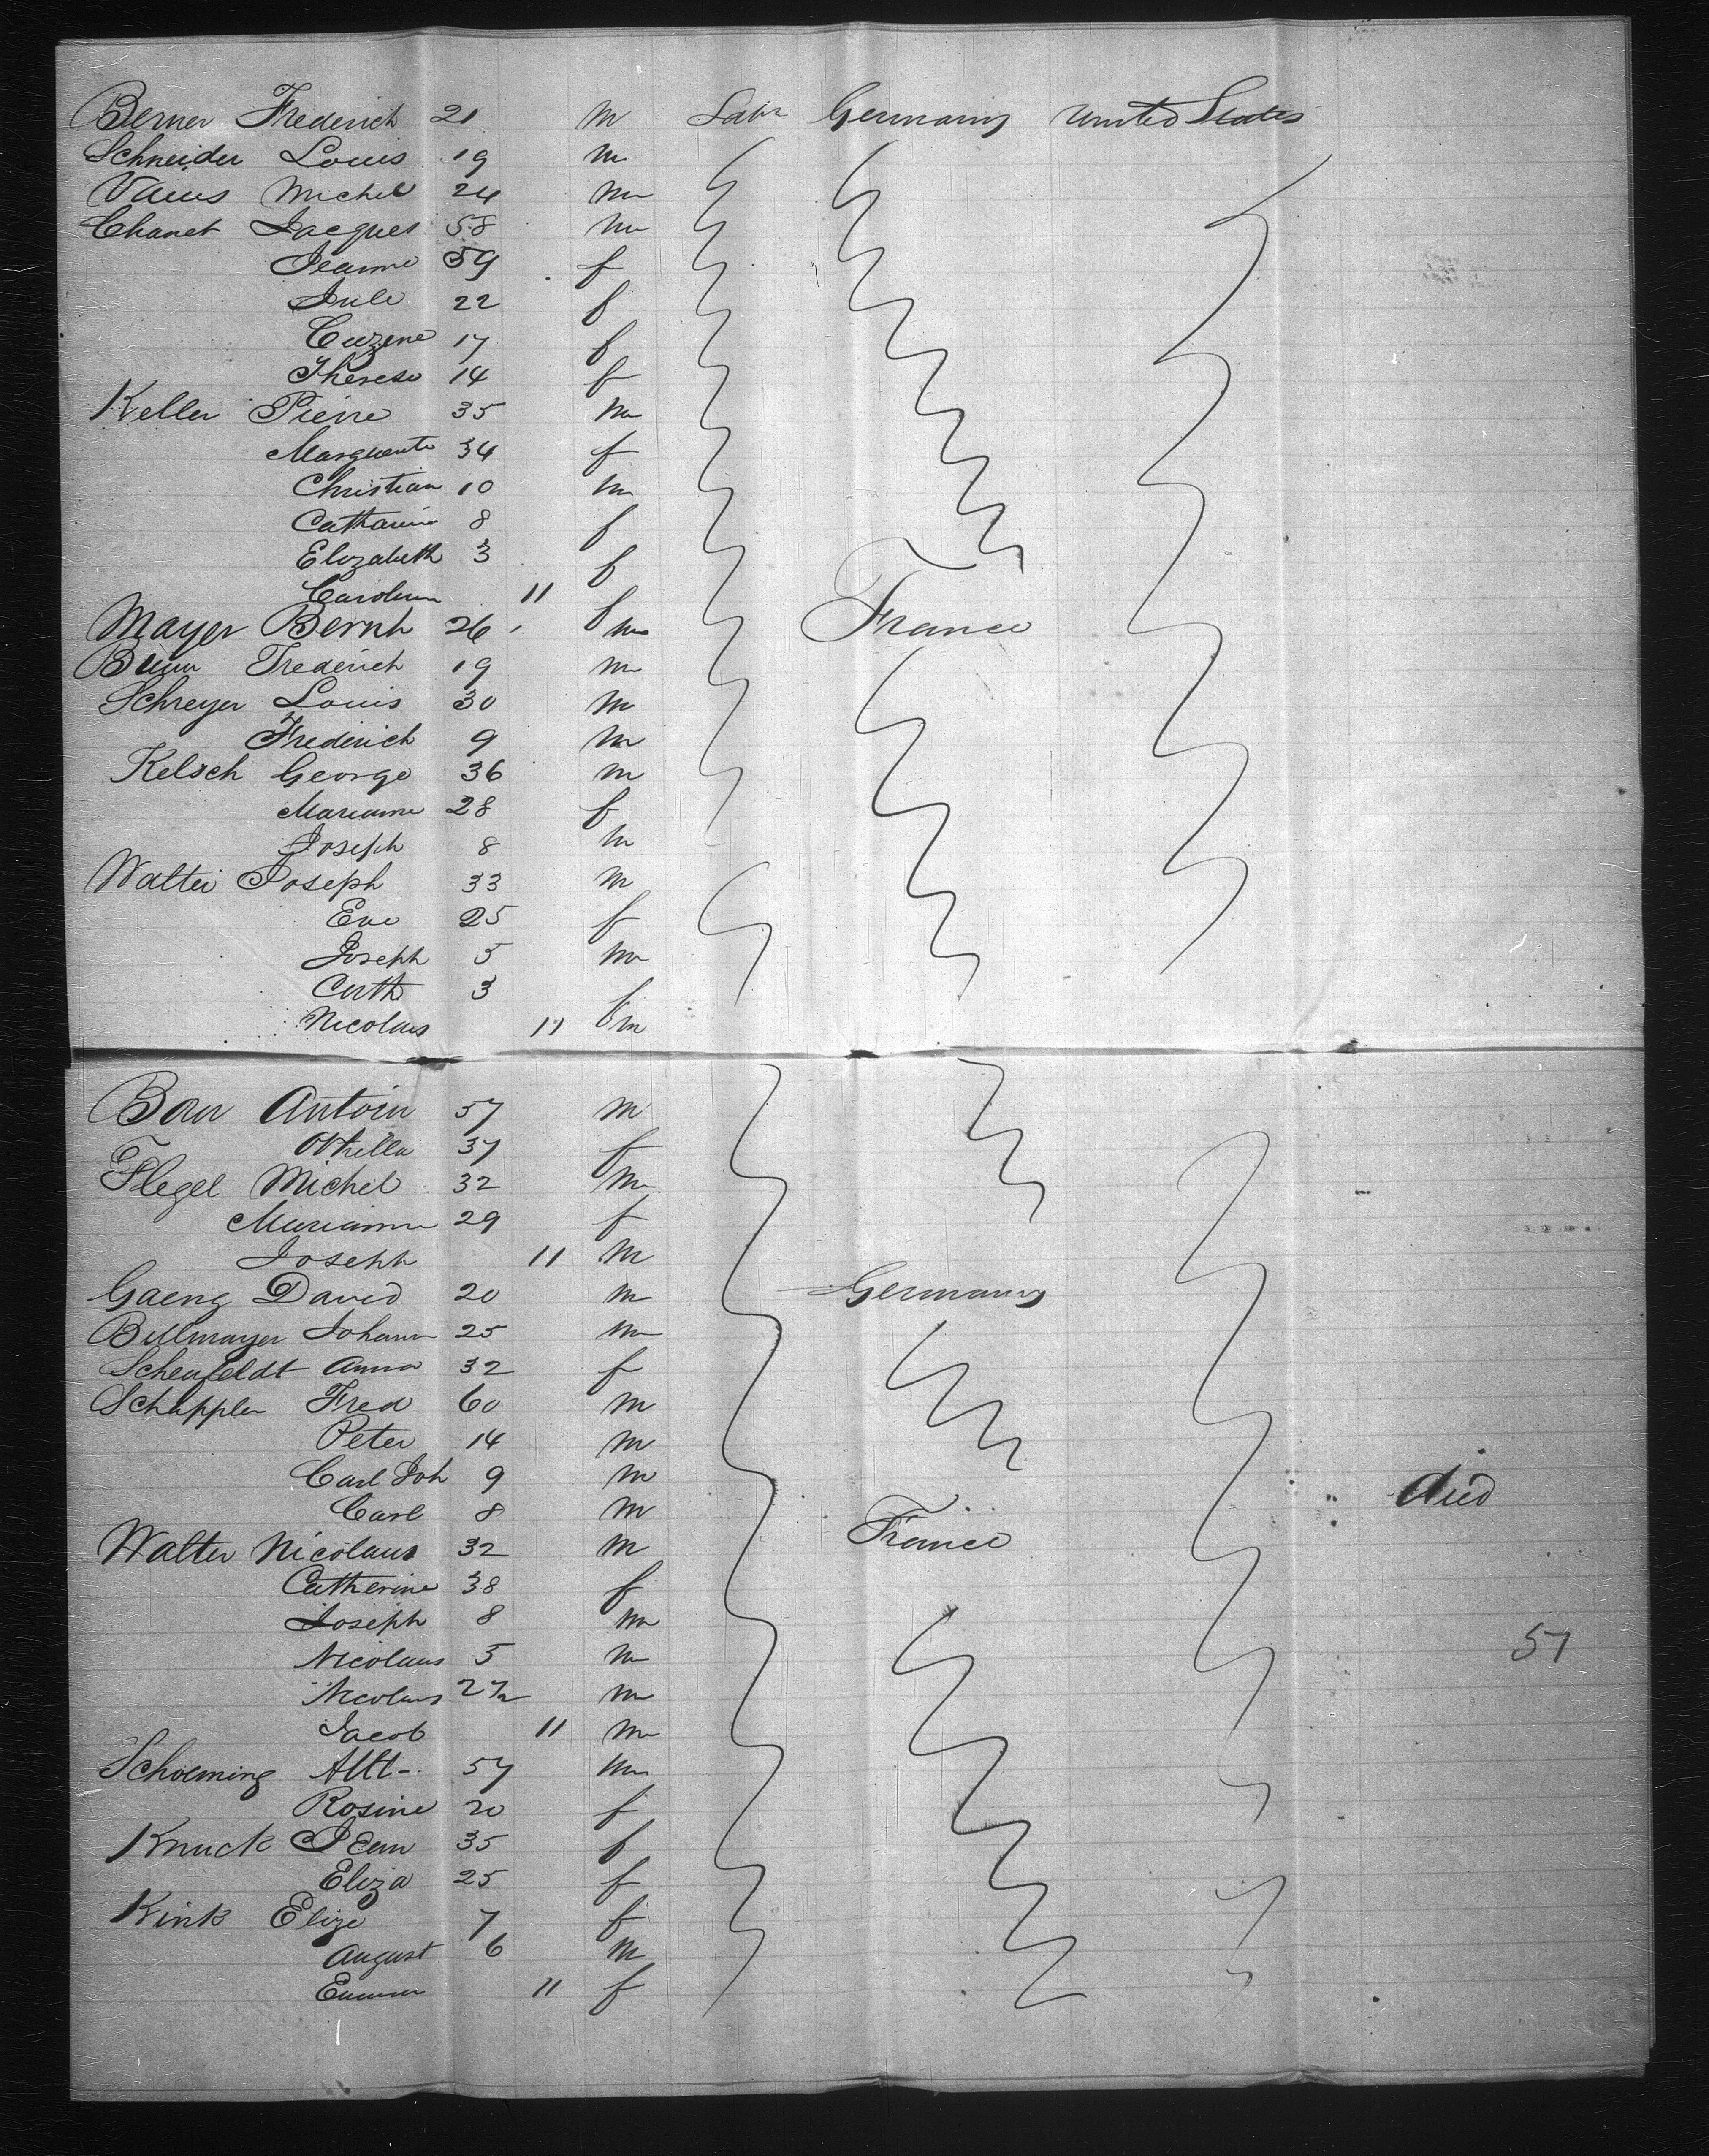 Berner Frederich 21 m Labr Germany United States
Schneider Louis 19 m
Michel 24 m
Chanet Jacques 58 m
Jeanne 59 f
Jule 22 f
Euzene 17 f
Therese 14 f
Keller Pierre 35 m
Marguerite 34 f
Christian 10 m
Catharine 8 f
Elizabeth 3 f
Carolina 11 f
Mayer Bernh 26 m France
Frederich 19 m
Schreyer Louis 30 m
Frederich 9 m
Kelsch George 36 m
Marianne 28 f
Joseph 8 m
Walter Joseph 33 m
Eve 25 f
Joseph 5 m
Cath 3 f
Nicolaus 11 m
Antoin 57 m
Othella 37 f
Flegel Michel 32 m
Marianne 29 f
Joseph 11 m
Gaeng David 20 m Germany
Billmayer Johann 25 m
Scheufeldt Anna 32 f
Schappler Fred 60 m
Peter 14 m
Carl Joh 9 m died
Carl 8 m
Walter Nicolaus 32 m France
Catherine 38 f
Joseph 8 m
Nicolaus 5 m 57
Nicolaus 2½ m
Jacob 11 m
Schoeming Allt 57 m
Rosine 20 f
Knuck Jean 35 f
Eliza 25 f
Kink Elize 7 f
August 6 m
Emma 11 f